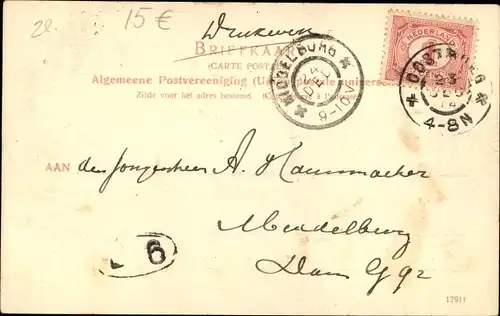 15 €
Drukwerk
BRIEFKAART
(CARTE POSTALE)
Algemeene Postvereeniging (Union postale universelle)
Zijde voor het adres bestemd. (Côté réservé à l'adresse)
NEDERLAND
MIDDELBURG
DEC
9-10V
OOSTBURG
23
DEC
4-8N
AAN den Jongeheer A. Hammacher
Middelburg
Dam G 92
6
17911